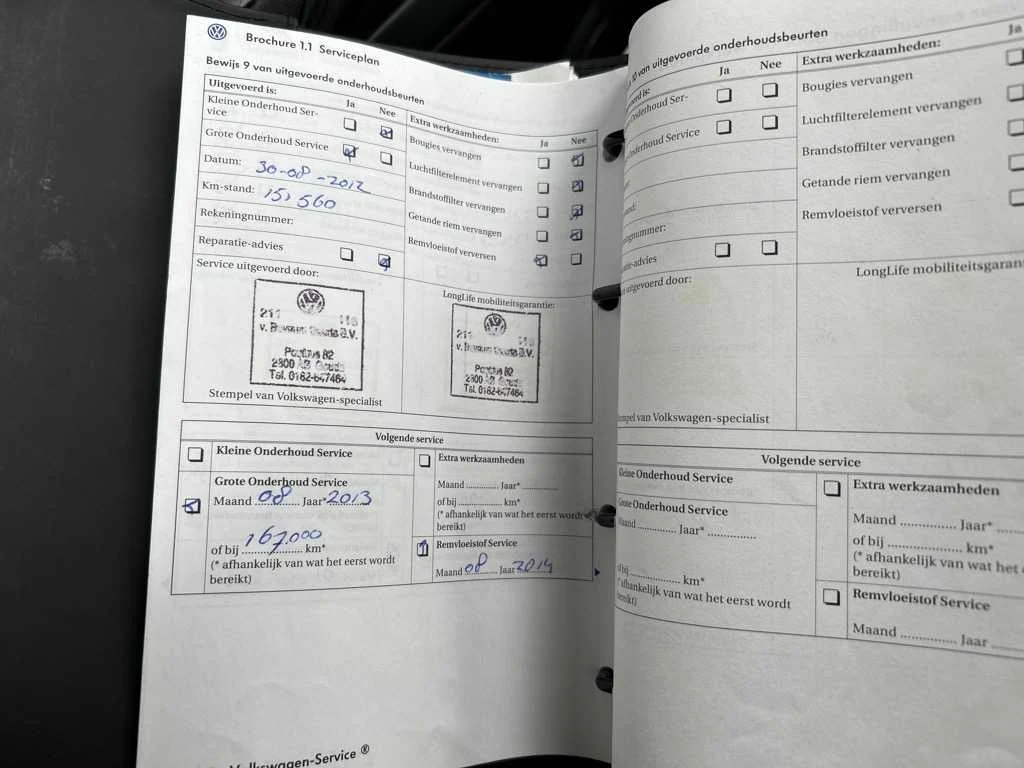 Brochure 1.1 Serviceplan
Bewijs 9 van uitgevoerde onderhoudsbeurten
Uitgevoerd is: Ja Nee
Kleine Onderhoud Ser-
vice
Grote Onderhoud Service
Datum: 30-08-2012
Km-stand: 151560
Rekeningnummer:
Reparatie-advies
Service uitgevoerd door:
211 116
Postbus 82
2800 AB Gouda
Tel. 0182-547464
Stempel van Volkswagen-specialist
Extra werkzaamheden: Ja Nee
Bougies vervangen
Luchtfilterelement vervangen
Brandstoffilter vervangen
Getande riem vervangen
Remvloeistof verversen
LongLife mobiliteitsgarantie:
Postbus 82
2800 AB Gouda
Tel. 0182-547464
Volgende service
Kleine Onderhoud Service
Grote Onderhoud Service
Maand 08 Jaar* 2013
167.000
of bij ................ km*
(* afhankelijk van wat het eerst wordt
bereikt)
Extra werkzaamheden
Maand ............. Jaar* ...............
of bij ................ km*
(* afhankelijk van wat het eerst wordt
bereikt)
Remvloeistof Service
Maand 08 Jaar 2014
Volkswagen-Service ®
10 van uitgevoerde onderhoudsbeurten
Ja Nee
Onderhoud Ser-
Onderhoud Service
uitgevoerd door:
Stempel van Volkswagen-specialist
Extra werkzaamheden: Ja
Bougies vervangen
Luchtfilterelement vervangen
Brandstoffilter vervangen
Getande riem vervangen
Remvloeistof verversen
LongLife mobiliteitsgaran
Volgende service
Kleine Onderhoud Service
Grote Onderhoud Service
Maand .............. Jaar* ...............
of bij ................ km*
(* afhankelijk van wat het eerst wordt
bereikt)
Extra werkzaamheden
Maand .............. Jaar* .....
of bij ..................... km*
(* afhankelijk van wat het eers
bereikt)
Remvloeistof Service
Maand .............. Jaar .....